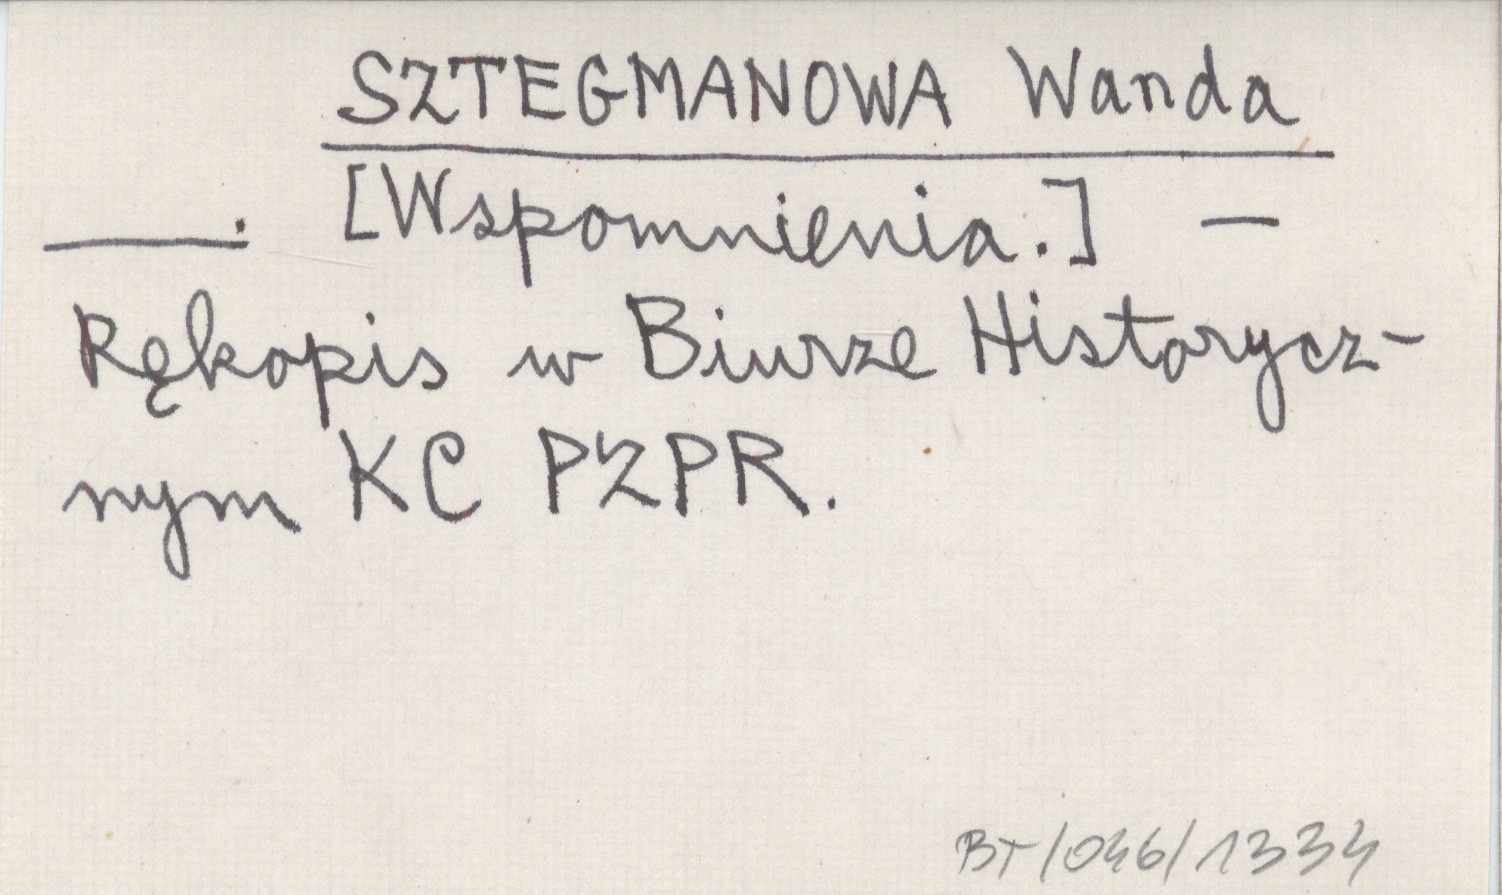 SZTEGMANOWA Wanda
____. [Wspomnienia.] —
Rękopis w Biurze Historycz-
nym KC PZPR.
BT/046/1334